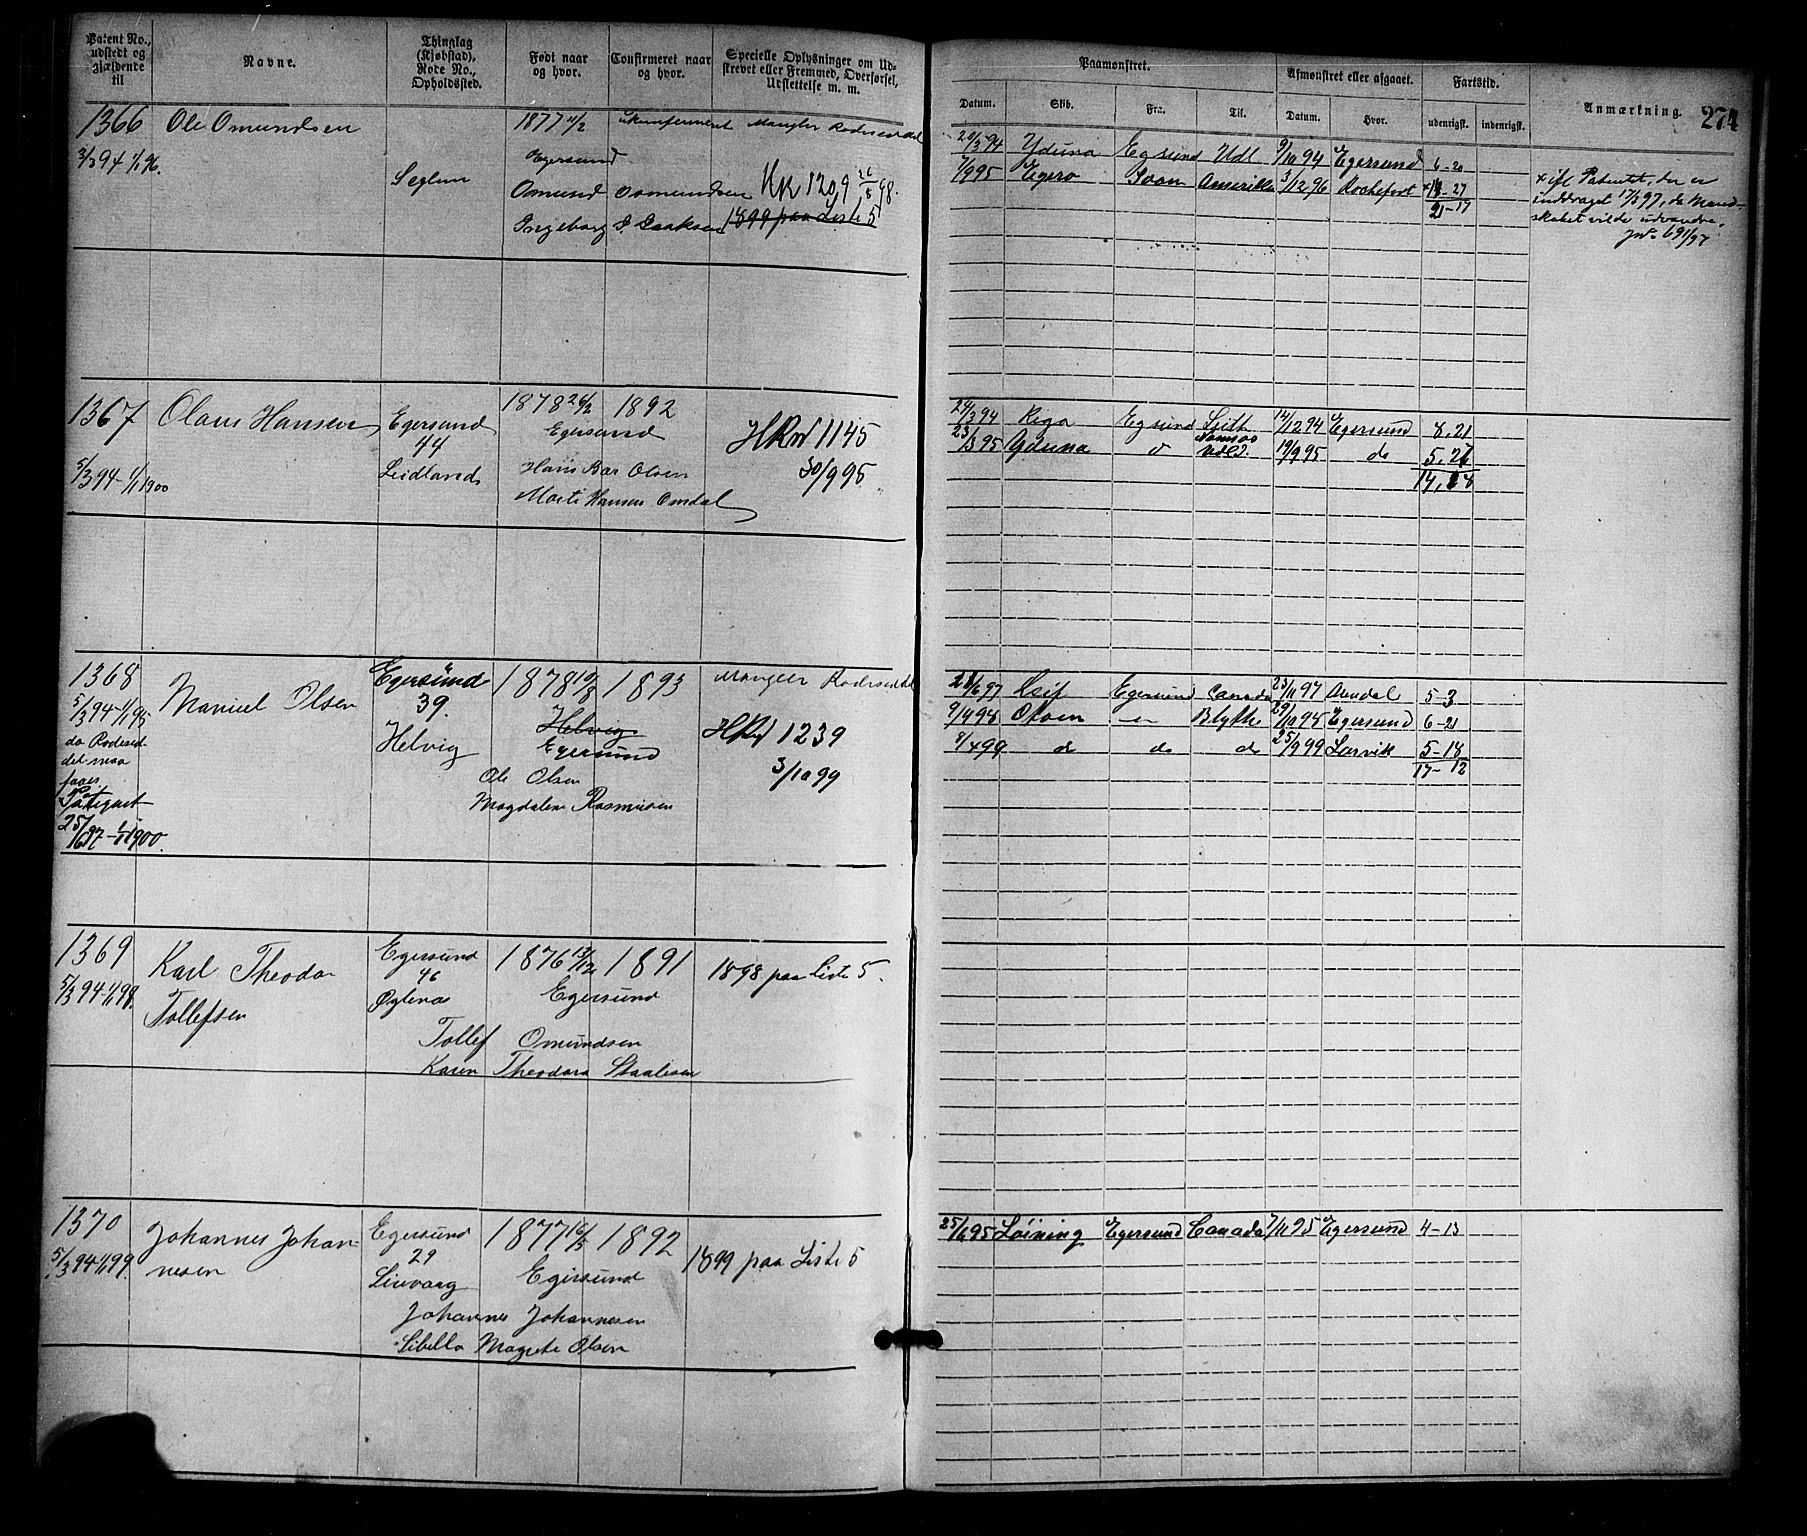 Patent No., udstedt og gjældende til
Navne.
Thinglag (Kjøbstad), Rode No., Opholdssted.
Født naar og hvor.
Confirmeret naar og hvor.
Specielle Oplysninger om Udskrevet eller Fremmed, Overførsel, Udslettelse m. m.
Paamønstret.
Afmønstret eller afgaaet.
Fartstid.
Anmærkning.
274
Datum.
Skb.
Fra:
Til.
Datum.
Hvor.
udenrigsk.
indenrigsk.
1366 Ole Omundsen 1877 11/2 ukonfirmeret Mangler Rodeseddel
3/3 94 1/1 96.
Egersund
Seglem
Osmund Oosmundsen HR 1209 26/8 98.
Ingeborg D. Isaksen 1899 paa Liste 5
20/3 94 Yduna Egsund Udl 9/10 94 Egersund 6-20
7/9 95 Egerø Soon Amerika 3/12 96 Rochefort +13-27
21-17
+ ifl Patentet, der er
inddraget 17/3 97, da Mand-
skabet vilde udvandre.
Jno 691/97
1367 Olaus Hansen Egersund 1878 26/2 1892
44 Egersund HRw 1145
5/3 94-1/1 1900 Leidland Hans Bar Olsen 30/9 95
Marte Hansen Omdal
24/3 94 Riga Egsund Leith 14/12 94 Egersund 8.21
23/3 95 Yduna d Namsos Udld. 19/9 95 do 5.26
14.18
1368 Manuel Olsen Egersund 1878 10/8 1893 Mangler Rodeseddel
5/3 94-1/1 95 39.
da Rodesed-
del maa
faaes
Helvig Helvig
Egersund HRw 1239
Ole Olsen 3/10 99
Magdalene Rasmusen
Patentet
25/6 97-1/1 1900.
21/6 97 Leif Egersund Canada 23/11 97 Arendal 5-3
9/4 98 Olsen " Blythe 29/10 98 Egersund 6-21
8/4 99 do do do 25/9 99 Larvik 5-18
17-12
1369 Karl Theodor Egersund 1876 13/12 1891 1898 paa Liste 5.
5/3 94-1/1 99. Tollefsen 46 Egersund
Øglenæs
Tollef Omundsen
Karen Theodora Staalesen
1370 Johannes Johan- Egersund 1877 16/5 1892
5/3 94-1/1 99. nesen 29 Egersund 1899 paa Liste 5
Johannes Johannesen
Sibella Magrete Olsen
25/6 95 Løining Egersund Canada 7/11 95 Egersund 4-13